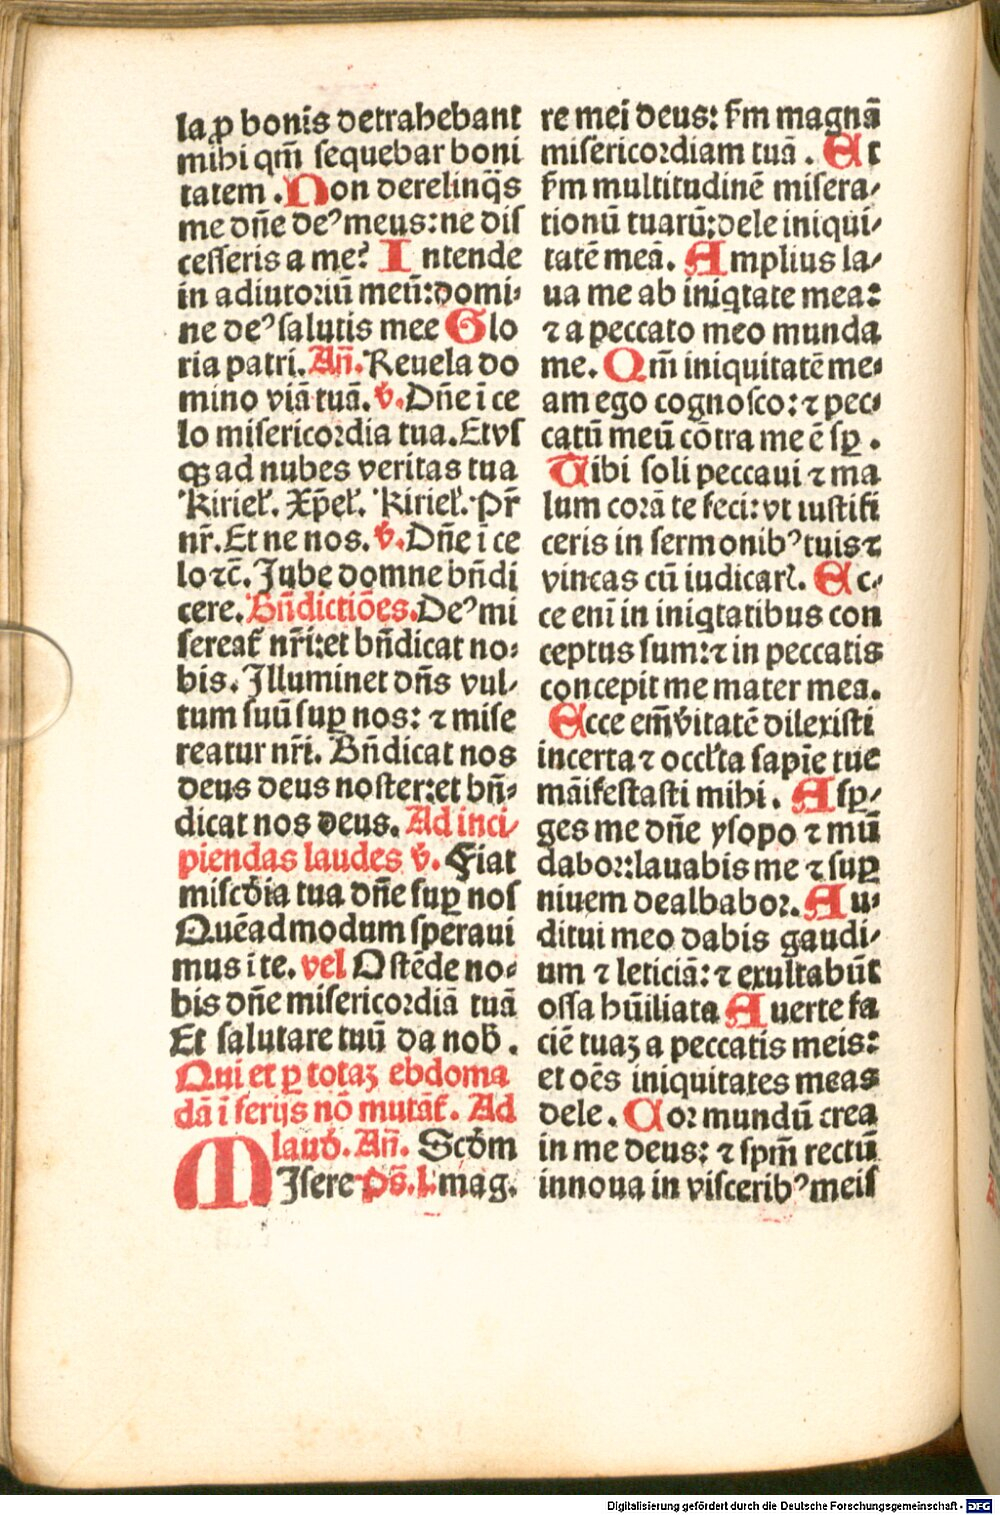 la ꝓ bonis detrahebant
mihi qm̄ sequebar boni
tatem . Non derelinq̄s
me dn̄e deꝰ meus: ne diſ
ceſſeris a me? Intende
in adiutoriū meū: domi-
ne deꝰ ſalutis mee Glo
ria patri. An̄. Reuela do
mino viā tuā. v̄. Dn̄e ī ce
lo miſericordia tua. Etvſ
qꝫ ad nubes veritas tua
Kirieł. Xp̄eł. Kirieł. Pr̄
nr̄. Et ne nos. v̄. Dn̄e ī ce
lo ⁊c̄. Jube domne bn̄di
cere. Bn̄dictiōes. Deꝰ mi
ſereat᷑ nr̄i: et bn̄dicat no-
bis. Illuminet dn̄s vul-
tum ſuū ſuꝑ nos: ⁊ miſe
reatur nr̄i. Bn̄dicat nos
deus deus noſter: et bn̄-
dicat nos deus. Ad inci-
piendas laudes v̄. Fiat
miſcd̄ia tua dn̄e ſuꝑ noſ
Quēadmodum ſperaui
mus ī te. vel Oſtēde no-
bis dn̄e miſericordiā tuā
Et ſalutare tuū da nob̄ .
Qui et ꝑ totaꝫ ebdoma
dā ī ferijs nō mutāt᷑. Ad
laud̄. An̄. Scd̄m
MIſere pš. l. mag.
re mei deus: ẜm magnā
miſericordiam tuā . Et
ẜm multitudinē miſera-
tionū tuarū: dele iniqui-
tatē meā. Amplius la-
ua me ab iniqtate mea:
⁊ a peccato meo munda
me. Qm̄ iniquitatē me-
am ego cognoſco: ⁊ pec-
catū meū cōtra me ē ſꝑ .
Tibi ſoli peccaui ⁊ ma
lum corā te feci: vt iuſtifi
ceris in ſermonibꝰ tuis ⁊
vincas cū iudicarꝭ. Ec-
ce enī in iniqtatibus con
ceptus ſum: ⁊ in peccatis
concepit me mater mea.
Ecce em̄ v̄itatē dilexiſti
incerta ⁊ occłta ſapīe tue
māifeſtaſti mihi . Aſꝑ-
ges me dn̄e yſopo ⁊ mū
dabor: lauabis me ⁊ ſuꝑ
niuem dealbabor. Au-
ditui meo dabis gaudi-
um ⁊ leticiā: ⁊ exultabūt
oſſa hūiliata Auerte fa
ciē tuaꝫ a peccatis meis:
et oēs iniquitates meas
dele . Cor mundū crea
in me deus: ⁊ ſpm̄ rectū
innoua in viſceribꝰ meiſ
Digitalisierung gefördert durch die Deutsche Forschungsgemeinschaft - DFG